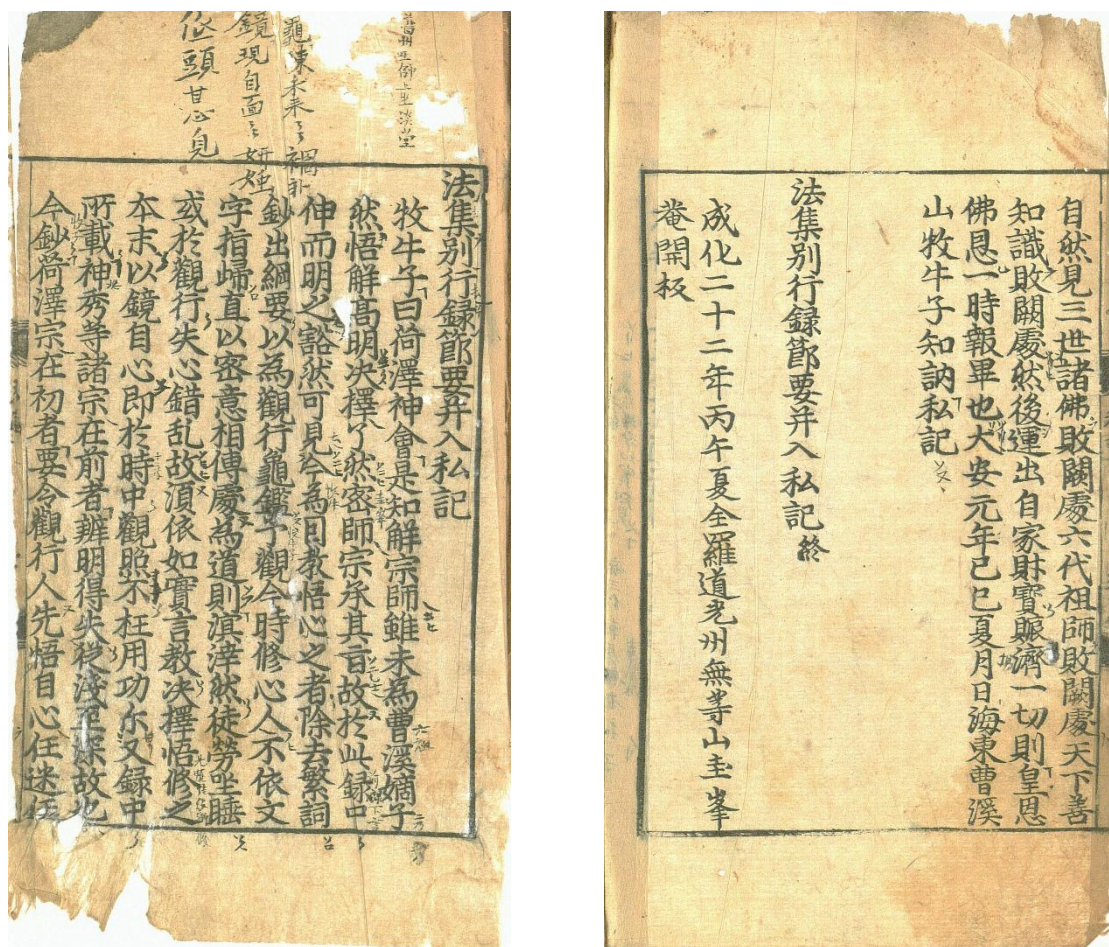 法集别行録節要并入私記
牧牛子曰荷澤神會是知解宗師雖未為曹溪嫡子
然悟解高明決擇了然密師宗承其旨故於此録中
伸而明之豁然可見今為因教悟心之者除去繁詞
鈔出綱要以為觀行龜鑑予觀今時修心人不依文
字指歸直以密意相傳處為道則溟涬然徒勞坐睡
或於觀行失心錯乱故湏依如實言教決擇悟修之
本末以鏡自心即於時中觀照不枉用功尔又録中
所載神秀等諸宗在前者辨明得失從淺至深故也
今鈔荷澤宗在初者要令觀行人先悟自心任迷任
鏡現自面
低頭甚皃
自然見三世諸佛敗闕處六代祖師敗闕處天下善
知識敗闕處然後運出自家財寳賑濟一切則皇恩
佛恩一時報畢也大安元年己巳夏月日海東曹溪
山牧牛子知訥私記
法集别行録節要并入私記 終
成化二十二年丙午夏全羅道光州無等山圭峯
菴開板